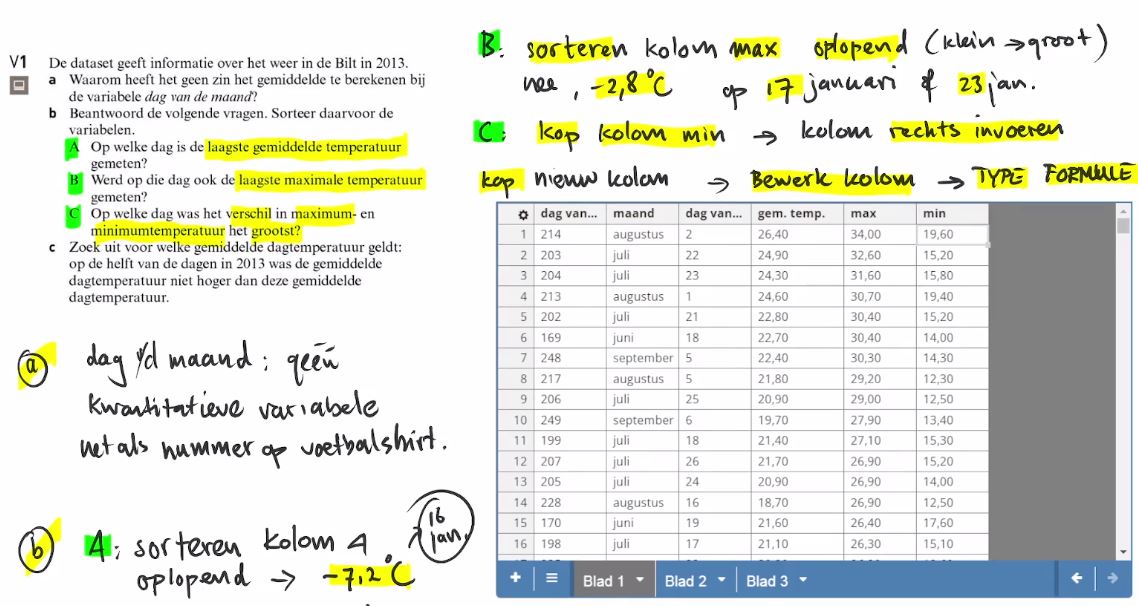 V1 De dataset geeft informatie over het weer in de Bilt in 2013.
a Waarom heeft het geen zin het gemiddelde te berekenen bij
de variabele dag van de maand?
b Beantwoord de volgende vragen. Sorteer daarvoor de
variabelen.
A Op welke dag is de laagste gemiddelde temperatuur
gemeten?
B Werd op die dag ook de laagste maximale temperatuur
gemeten?
C Op welke dag was het verschil in maximum- en
minimumtemperatuur het grootst?
c Zoek uit voor welke gemiddelde dagtemperatuur geldt:
op de helft van de dagen in 2013 was de gemiddelde
dagtemperatuur niet hoger dan deze gemiddelde
dagtemperatuur.
a dag v/d maand: geen
kwantitatieve variabele
net als nummer op voetbalshirt.
b A: sorteren kolom 4
oplopend → -7,2°C
16
jan.
B: sorteren kolom max oplopend (klein → groot)
nee, -2,8°C op 17 januari & 23 jan.
C: kop kolom min → kolom rechts invoeren
kop nieuw kolom → Bewerk kolom → TYPE FORMULE
dag van... maand dag van... gem. temp. max min
1 214 augustus 2 26,40 34,00 19,60
2 203 juli 22 24,90 32,60 15,20
3 204 juli 23 24,30 31,60 15,80
4 213 augustus 1 24,60 30,70 19,40
5 202 juli 21 22,80 30,40 15,20
6 169 juni 18 22,70 30,40 14,00
7 248 september 5 22,40 30,30 14,30
8 217 augustus 5 21,80 29,20 12,30
9 206 juli 25 20,90 29,00 12,50
10 249 september 6 19,70 27,90 13,40
11 199 juli 18 21,40 27,10 15,30
12 207 juli 26 21,70 26,90 15,20
13 205 juli 24 20,90 26,90 14,00
14 228 augustus 16 18,70 26,90 12,50
15 170 juni 19 21,60 26,40 17,60
16 198 juli 17 21,10 26,30 15,10
Blad 1 Blad 2 Blad 3